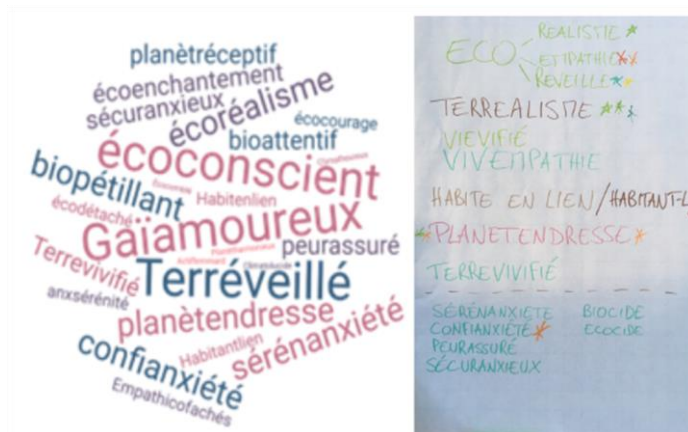 planètréceptif
écoenchantement
sécuranxieux
écoréalisme
écocourage
bioattentif
écoconscient
biopétillant
Habitenlien
écodétaché
Gaïamoureux
peurassuré
Terrevivifié
Terréveillé
anxsérénité
planètendresse
Habitantlien
sérénanxiété
confianxiété
Empathicofachés
ECO
REALISTIE
REVEILLE
TERREALISME
VIEVIFIÉ
VIVEMPATHIE
HABITE EN LIEN/HABITANT-L
PLANETENDRESSE
TERREVIVIFIÉ
SÉRÉNANXIETE BIOCIDE
CONFIANXIÉTÉ ECOCIDE
PEURASSURÉ
SÉCURANXIEUX